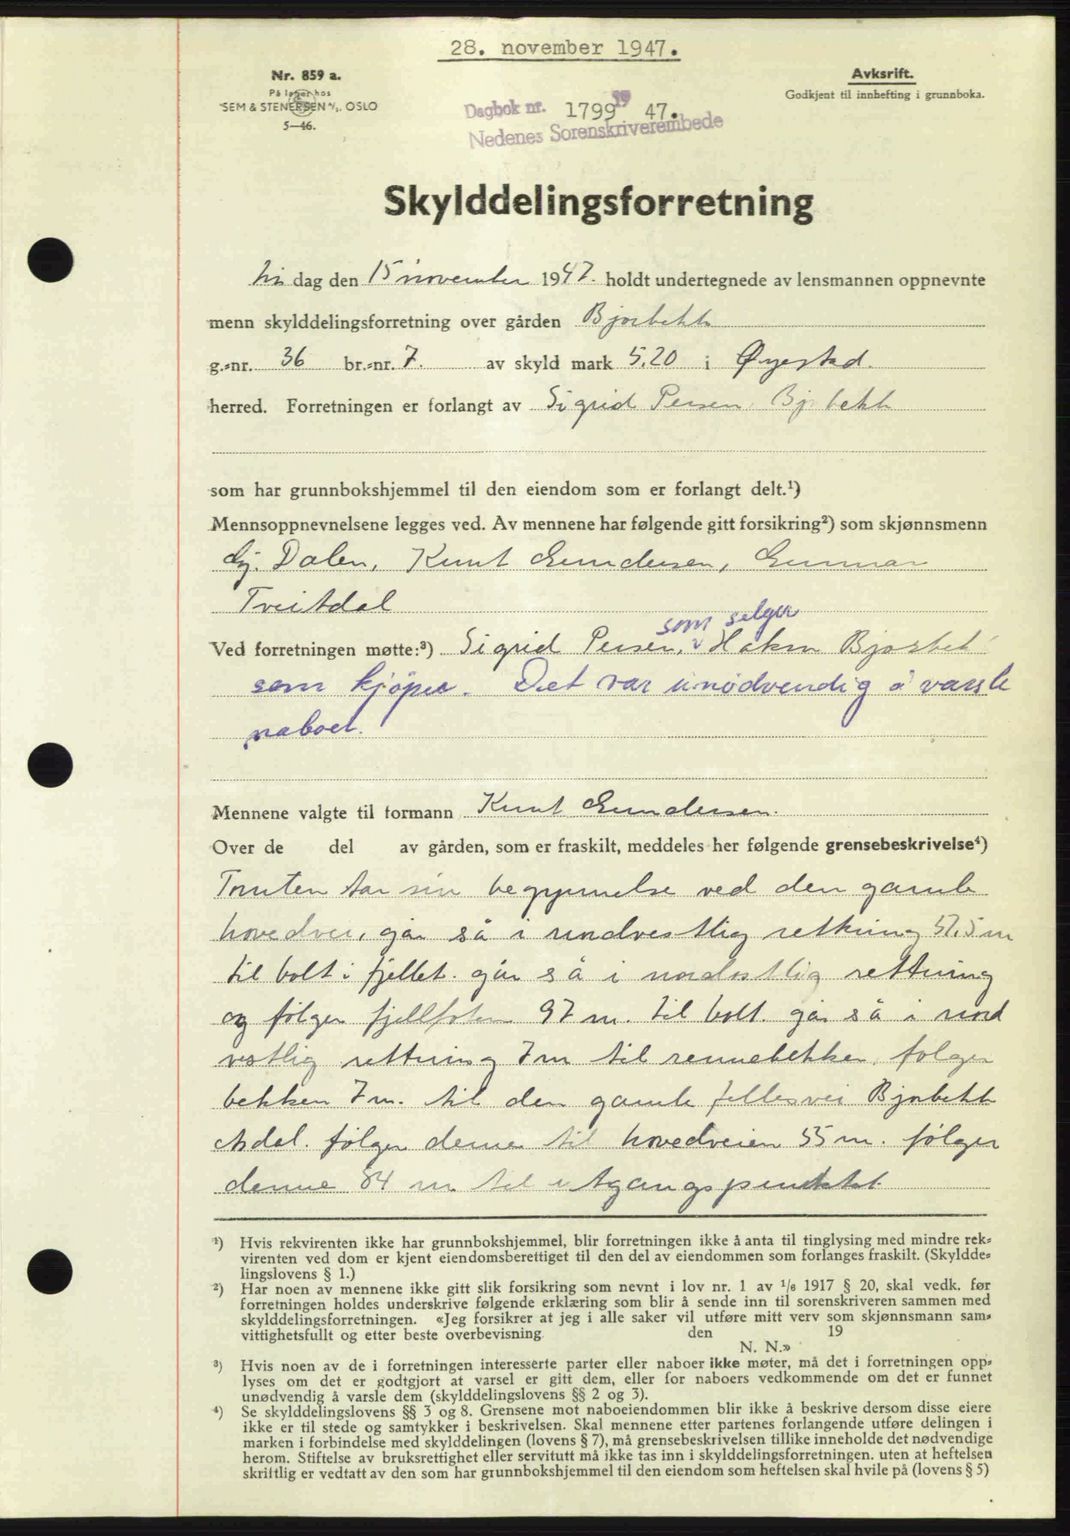 28. november 1947.
Nr. 859 a.
På lager hos
SEM & STENERSEN A/S. OSLO
5—46.
Avksrift.
Godkjent til innhefting i grunnboka.
Dagbok nr. 1799 19 47.
Nedenes Sorenskriverembede
Skylddelingsforretning
dag den 15 november 1947. holdt undertegnede av lensmannen oppnevnte
menn skylddelingsforretning over gården Bjorbekk
g.-nr. 36 br.-nr. 7. av skyld mark 5,20 i Øyestad.
herred. Forretningen er forlangt av Sigrid Persen, Bjorbekk
som har grunnbokshjemmel til den eiendom som er forlangt delt.¹)
Mennsoppnevnelsene legges ved. Av mennene har følgende gitt forsikring²) som skjønnsmenn
Gj. Dalen, Knut Gundersen, Gunnar
Tveitdal
som selger
Ved forretningen møtte:³) Sigrid Persen, Håkon Bjorbek
som kjøper. Det var unødvendig å varsle
naboer.
Mennene valgte til formann Knut Gundersen.
Over de del av gården, som er fraskilt, meddeles her følgende grensebeskrivelse⁴)
Tomten tar sin begynnelse ved den gamle
hovedvei, går så i nordvestlig retning 57,5 m
til bolt i fjellet. går så i nordostlig rettning
og følger fjellfoten 97 m. til bolt. går så i nord
vestlig rettning 7 m til rennebekken, følger
bekken 7 m. til den gamle fellesvei Bjorbekk
følger denne til hovedveien 55 m. følger
denne 84 m til utgangspunktet
¹) Hvis rekvirenten ikke har grunnbokshjemmel, blir forretningen ikke å anta til tinglysing med mindre rek-
virenten ved dom er kjent eiendomsberettiget til den del av eiendommen som forlanges fraskilt. (Skyldde-
lingslovens § 1.)
²) Har noen av mennene ikke gitt slik forsikring som nevnt i lov nr. 1 av 1/6 1917 § 20, skal vedk. før
forretningen holdes underskrive følgende erklæring som blir å sende inn til sorenskriveren sammen med
skylddelingsforretningen. «Jeg forsikrer at jeg i alle saker vil utføre mitt verv som skjønnsmann sam-
vittighetsfullt og etter beste overbevisning den 19
N. N.»
³) Hvis noen av de i forretningen interesserte parter eller naboer ikke møter, må det i forretningen opp-
lyses om det er godtgjort at varsel er gitt dem, eller for naboers vedkommende om det er funnet
unødvendig å varsle dem (skylddelingslovens §§ 2 og 3).
⁴) Se skylddelingslovens §§ 3 og 8. Grensene mot naboeiendommen blir ikke å beskrive dersom disse eiere
ikke er til stede og samtykker i beskrivelsen. Skal mennene etter partenes forlangende utføre delingen i
marken i forbindelse med skylddelingen (lovens § 7), må grensebeskrivelsen tillike inneholde det nødvendige
herom. Stiftelse av bruksrettighet eller servitutt må ikke tas inn i skylddelingsforretningen. uten at heftelsen
skriftlig er vedtatt av den som har grunnbokshjemmel til den eiendom som heftelsen skal hvile på (lovens § 5)